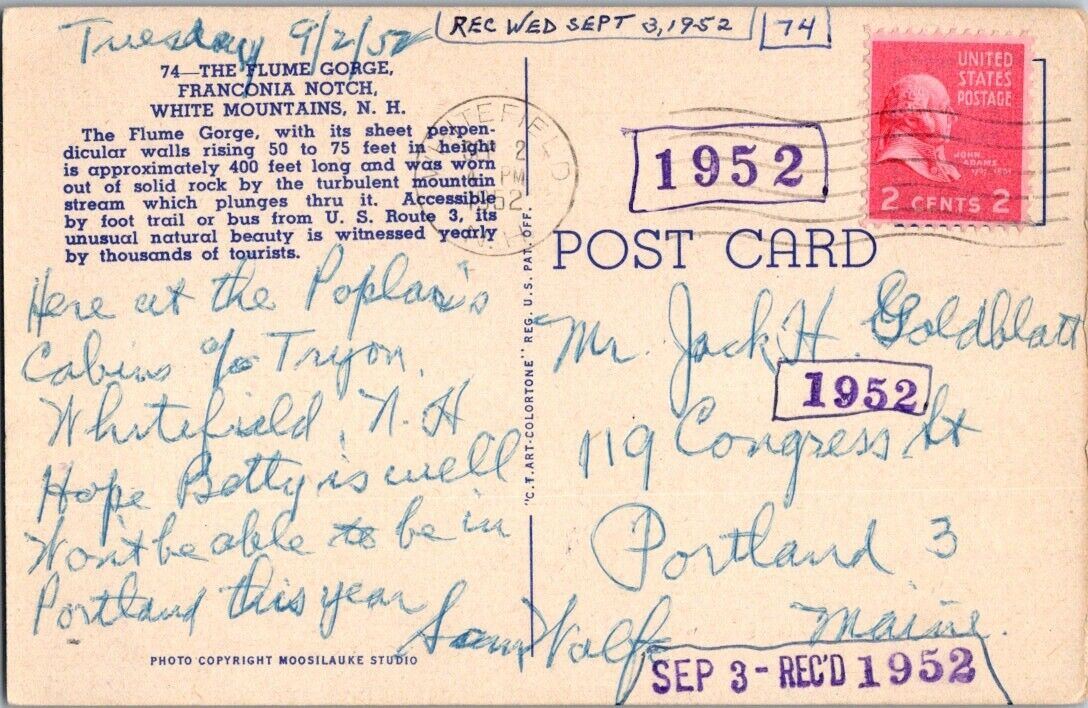 Tuesday 9/2/52
REC WED SEPT 3, 1952
74
74—THE FLUME GORGE,
FRANCONIA NOTCH,
WHITE MOUNTAINS, N. H.
The Flume Gorge, with its sheet perpen-
dicular walls rising 50 to 75 feet in height
is approximately 400 feet long and was worn
out of solid rock by the turbulent mountain
stream which plunges thru it. Accessible
by foot trail or bus from U. S. Route 3, its
unusual natural beauty is witnessed yearly
by thousands of tourists.
Here at the Poplar's
Cabins c/o Tryon,
Whitefield, N. H
Hope Betty is well
Won't be able to be in
Portland this year
Sam Wolfe
PHOTO COPYRIGHT MOOSILAUKE STUDIO
"C.T. ART-COLORTONE" REG. U.S. PAT. OFF.
WHITEFIELD
2
PM
1952
N.H.
1952
UNITED
STATES
POSTAGE
JOHN
ADAMS
1797-1801
2 CENTS 2
POST CARD
Mr. Jack H. Goldblatt
1952
119 Congress St
Portland 3
Maine.
SEP 3 - REC'D 1952